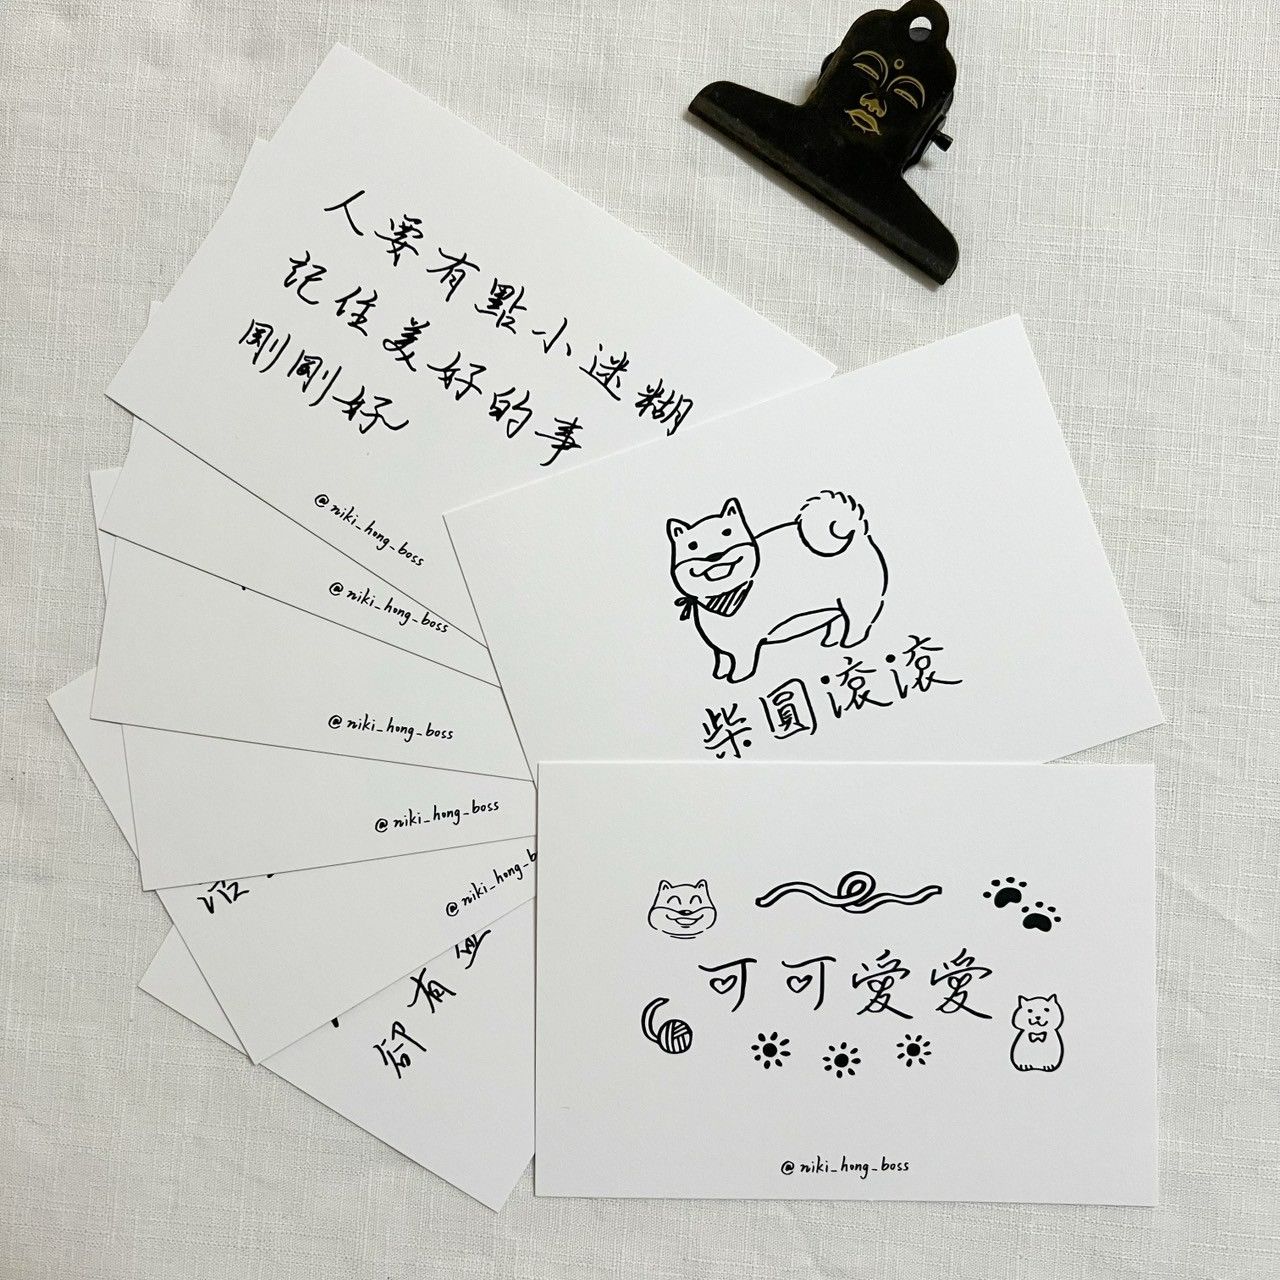 人要有點小迷糊
記住美好的事
剛剛好
@niki_hong_boss
@niki_hong_boss
@niki_hong_boss
@niki_hong_boss
@niki_hong_b
卻有
柴圓滾滾
可可愛愛
@niki_hong_boss